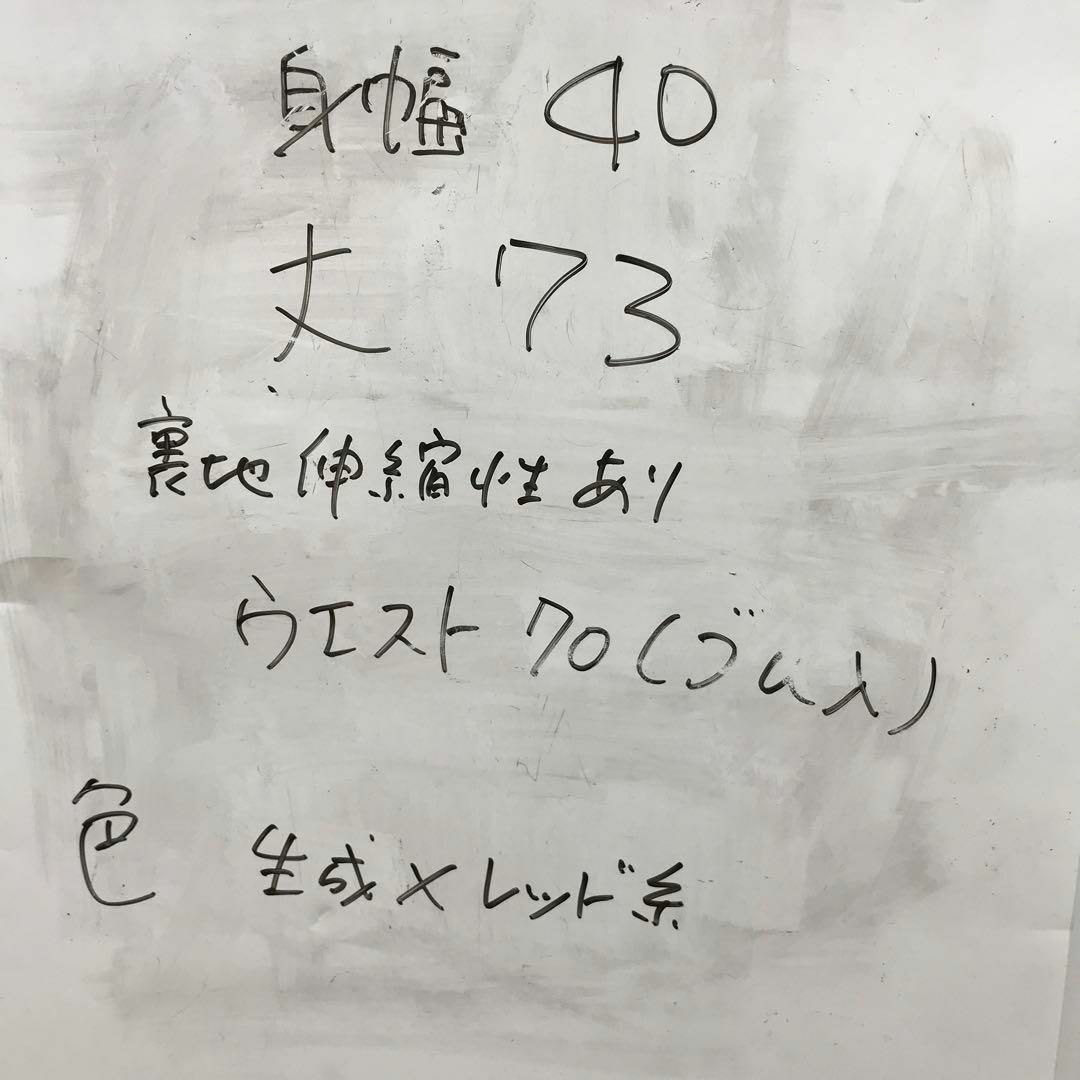 身幅 40
丈 73
裏地伸縮性あり
ウエスト 70(ゴム入)
色 生成×レッド系